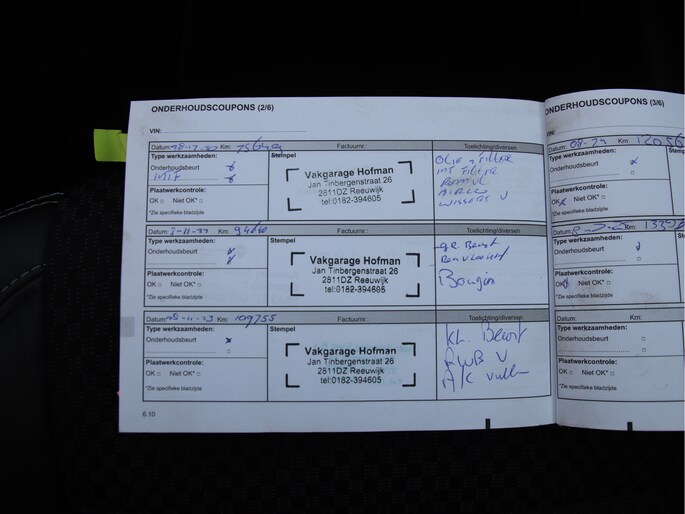 ONDERHOUDSCOUPONS (2/6)
VIN:
Datum: Km: Factuurnr.: Toelichting/diversen
Type werkzaamheden: Stempel
Onderhoudsbeurt
Plaatwerkcontrole:
OK □ Niet OK* □
*Zie specifieke bladzijde
Vakgarage Hofman
Jan Tinbergenstraat 26
2811DZ Reeuwijk
tel:0182-394605
Olie + Filter
Datum: Km: 94 Factuurnr.: Toelichting/diversen
Type werkzaamheden: Stempel
Onderhoudsbeurt
Plaatwerkcontrole:
OK □ Niet OK* □
*Zie specifieke bladzijde
Vakgarage Hofman
Jan Tinbergenstraat 26
2811DZ Reeuwijk
tel:0182-394605
gr. Beurt
Bougies
Datum: -11-23 Km: 109755 Factuurnr.: Toelichting/diversen
Type werkzaamheden: Stempel
Onderhoudsbeurt
Plaatwerkcontrole:
OK □ Niet OK* □
*Zie specifieke bladzijde
Vakgarage Hofman
Jan Tinbergenstraat 26
2811DZ Reeuwijk
tel:0182-394605
KL. Beurt
A/C vullen
6.10
ONDERHOUDSCOUPONS (3/6)
VIN:
Datum: Km:
Type werkzaamheden:
Onderhoudsbeurt
Plaatwerkcontrole:
OK Niet OK* □
*Zie specifieke bladzijde
Datum: Km:
Type werkzaamheden:
Onderhoudsbeurt
Plaatwerkcontrole:
OK Niet OK* □
*Zie specifieke bladzijde
Datum: Km:
Type werkzaamheden:
Onderhoudsbeurt
Plaatwerkcontrole:
OK □ Niet OK* □
*Zie specifieke bladzijde